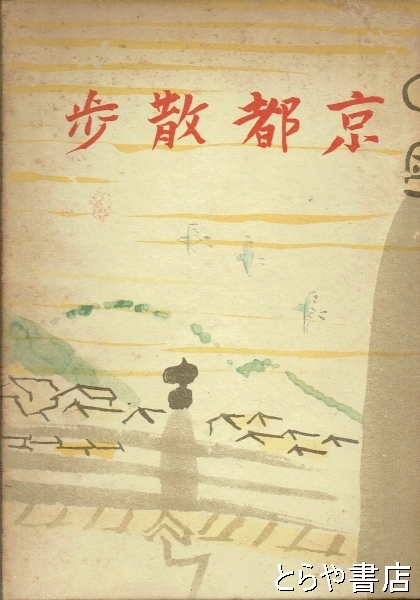 京都散歩
とらや書店